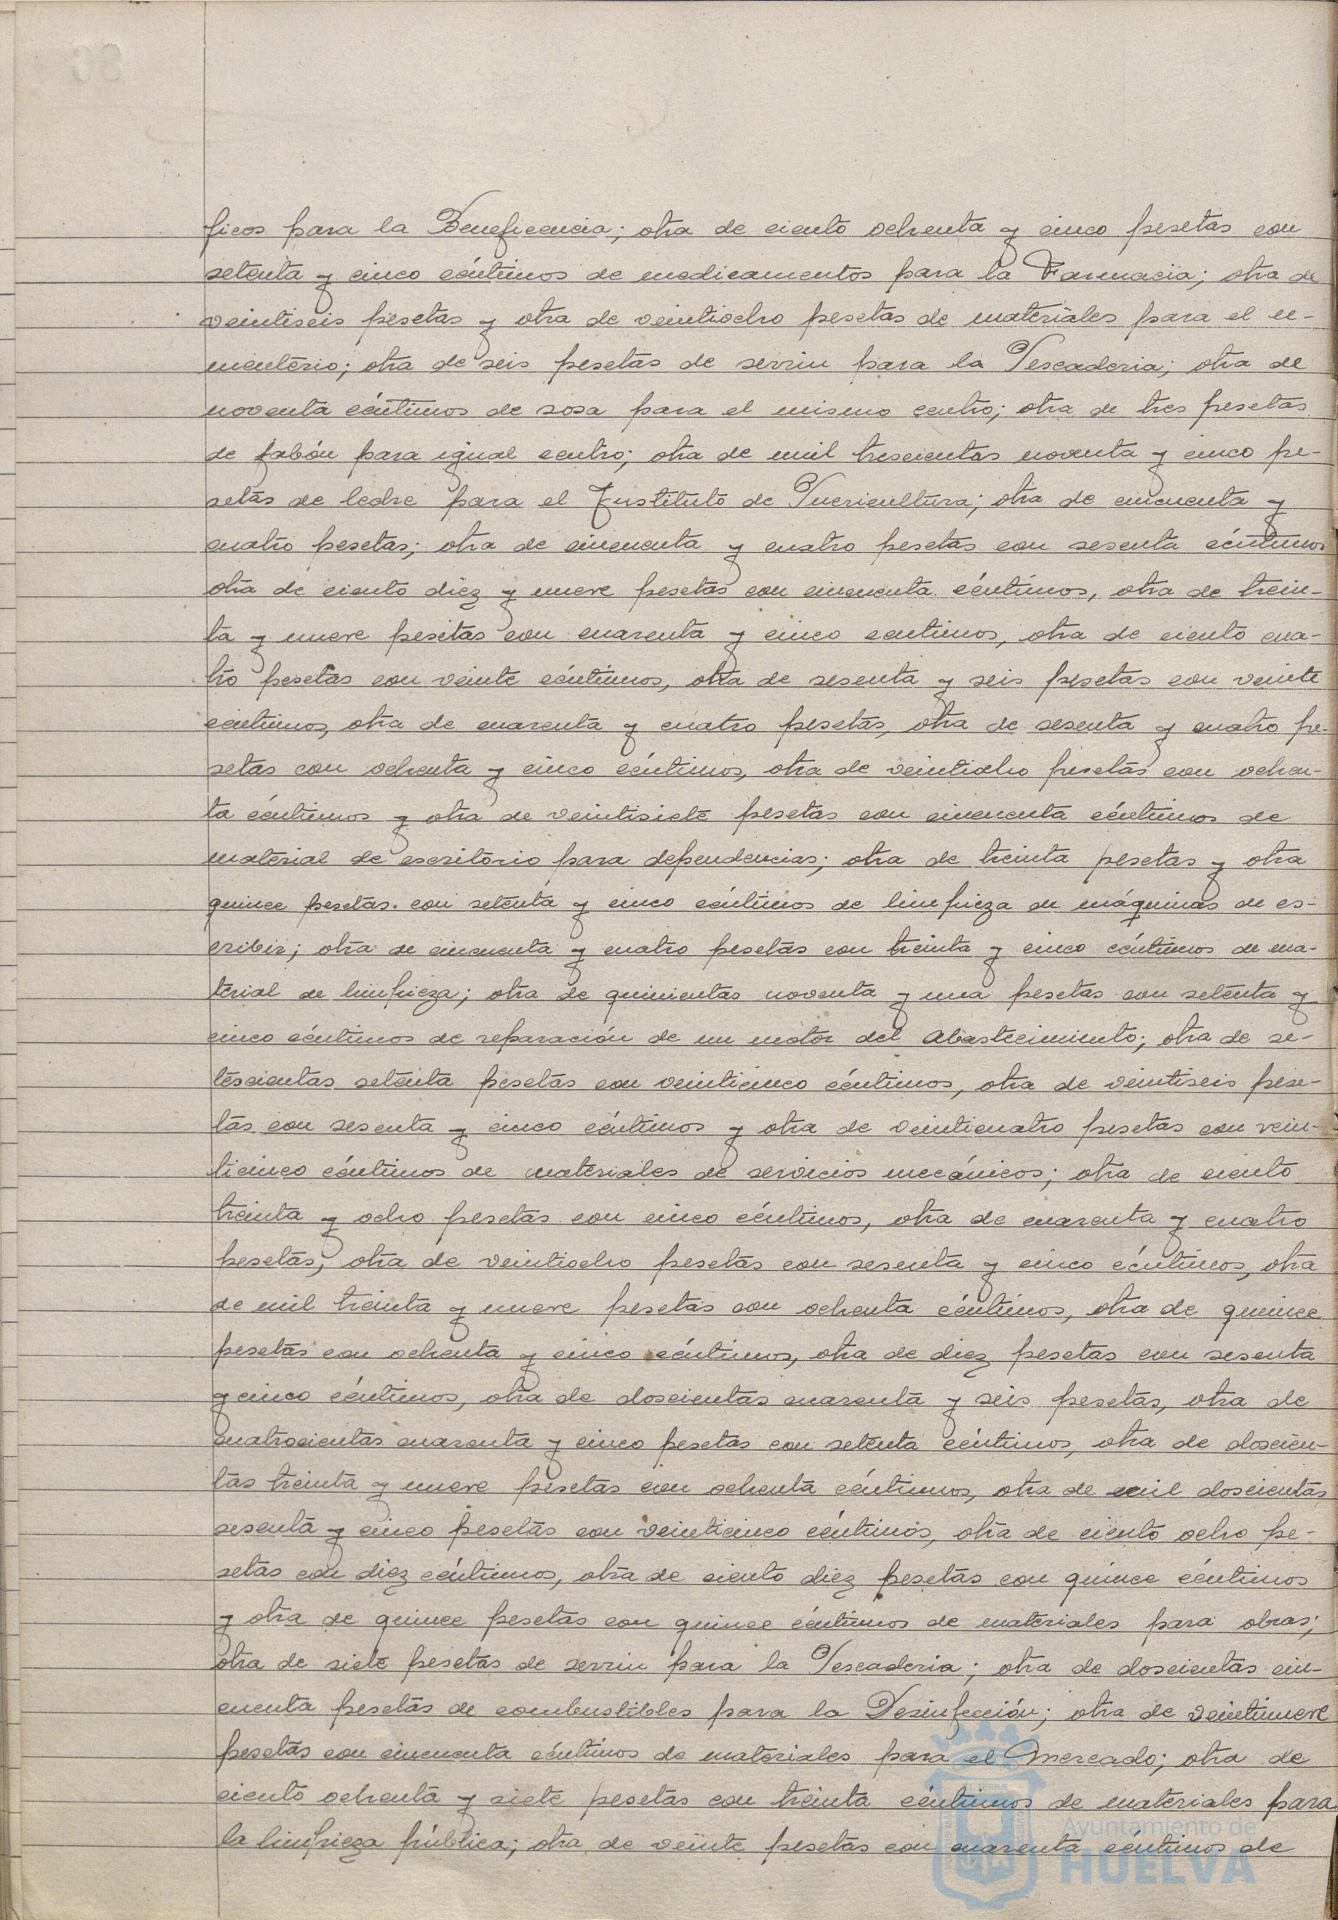 ficos para la Beneficencia; otra de ciento ochenta y cinco pesetas con
setenta y cinco céntimos de medicamentos para la Farmacia; otra de
veintiseis pesetas y otra de veintiocho pesetas de materiales para el ce-
menterio; otra de seis pesetas de serrin para la Pescaderia; otra de
noventa céntimos de sosa para el mismo centro; otra de tres pesetas
de jabón para igual centro; otra de mil trescientas noventa y cinco pe-
setas de leche para el Instituto de Puericultura; otra de cincuenta y
cuatro pesetas; otra de cincuenta y cuatro pesetas con sesenta céntimos
otra de ciento diez y nueve pesetas con cincuenta céntimos, otra de trein-
ta y nueve pesetas con cuarenta y cinco centimos, otra de ciento cua-
tro pesetas con veinte céntimos, otra de sesenta y seis pesetas con veinte
centimos, otra de cuarenta y cuatro pesetas, otra de sesenta y cuatro pe-
setas con ochenta y cinco céntimos, otra de veintiocho pesetas con ochen-
ta céntimos y otra de veintisiete pesetas con cincuenta céntimos de
material de escritorio para dependencias; otra de treinta pesetas y otra
quince pesetas con setenta y cinco céntimos de limpieza de máquinas de es-
cribir; otra de cincuenta y cuatro pesetas con treinta y cinco céntimos de ma-
terial de limpieza; otra de quinientas noventa y una pesetas con setenta y
cinco céntimos de reparación de un motor del Abastecimiento; otra de se-
tescientas setenta pesetas con veinticinco céntimos, otra de veintiseis pese-
tas con sesenta y cinco céntimos y otra de veinticuatro pesetas con vein-
ticinco céntimos de materiales de servicios mecánicos; otra de ciento
treinta y ocho pesetas con cinco céntimos, otra de cuarenta y cuatro
pesetas, otra de veintiocho pesetas con sesenta y cinco céntimos, otra
de mil treinta y nueve pesetas con ochenta céntimos, otra de quince
pesetas con ochenta y cinco céntimos, otra de diez pesetas con sesenta
y cinco céntimos, otra de doscientas cuarenta y seis pesetas, otra de
cuatrocientas cuarenta y cinco pesetas con setenta céntimos, otra de doscien-
tas treinta y nueve pesetas con ochenta céntimos, otra de mil doscientas
sesenta y cinco pesetas con veinticinco céntimos, otra de ciento ocho pe-
setas con diez céntimos, otra de ciento diez pesetas con quince céntimos
y otra de quince pesetas con quince céntimos de materiales para obras;
otra de siete pesetas de serrin para la Pescaderia; otra de doscientas cin-
cuenta pesetas de combustibles para la Desinfección; otra de veintinueve
pesetas con cincuenta céntimos de materiales para el Mercado; otra de
ciento ochenta y siete pesetas con treinta céntimos de materiales para
la limpieza pública; otra de veinte pesetas con cuarenta céntimos de
Ayuntamiento de
HUELVA